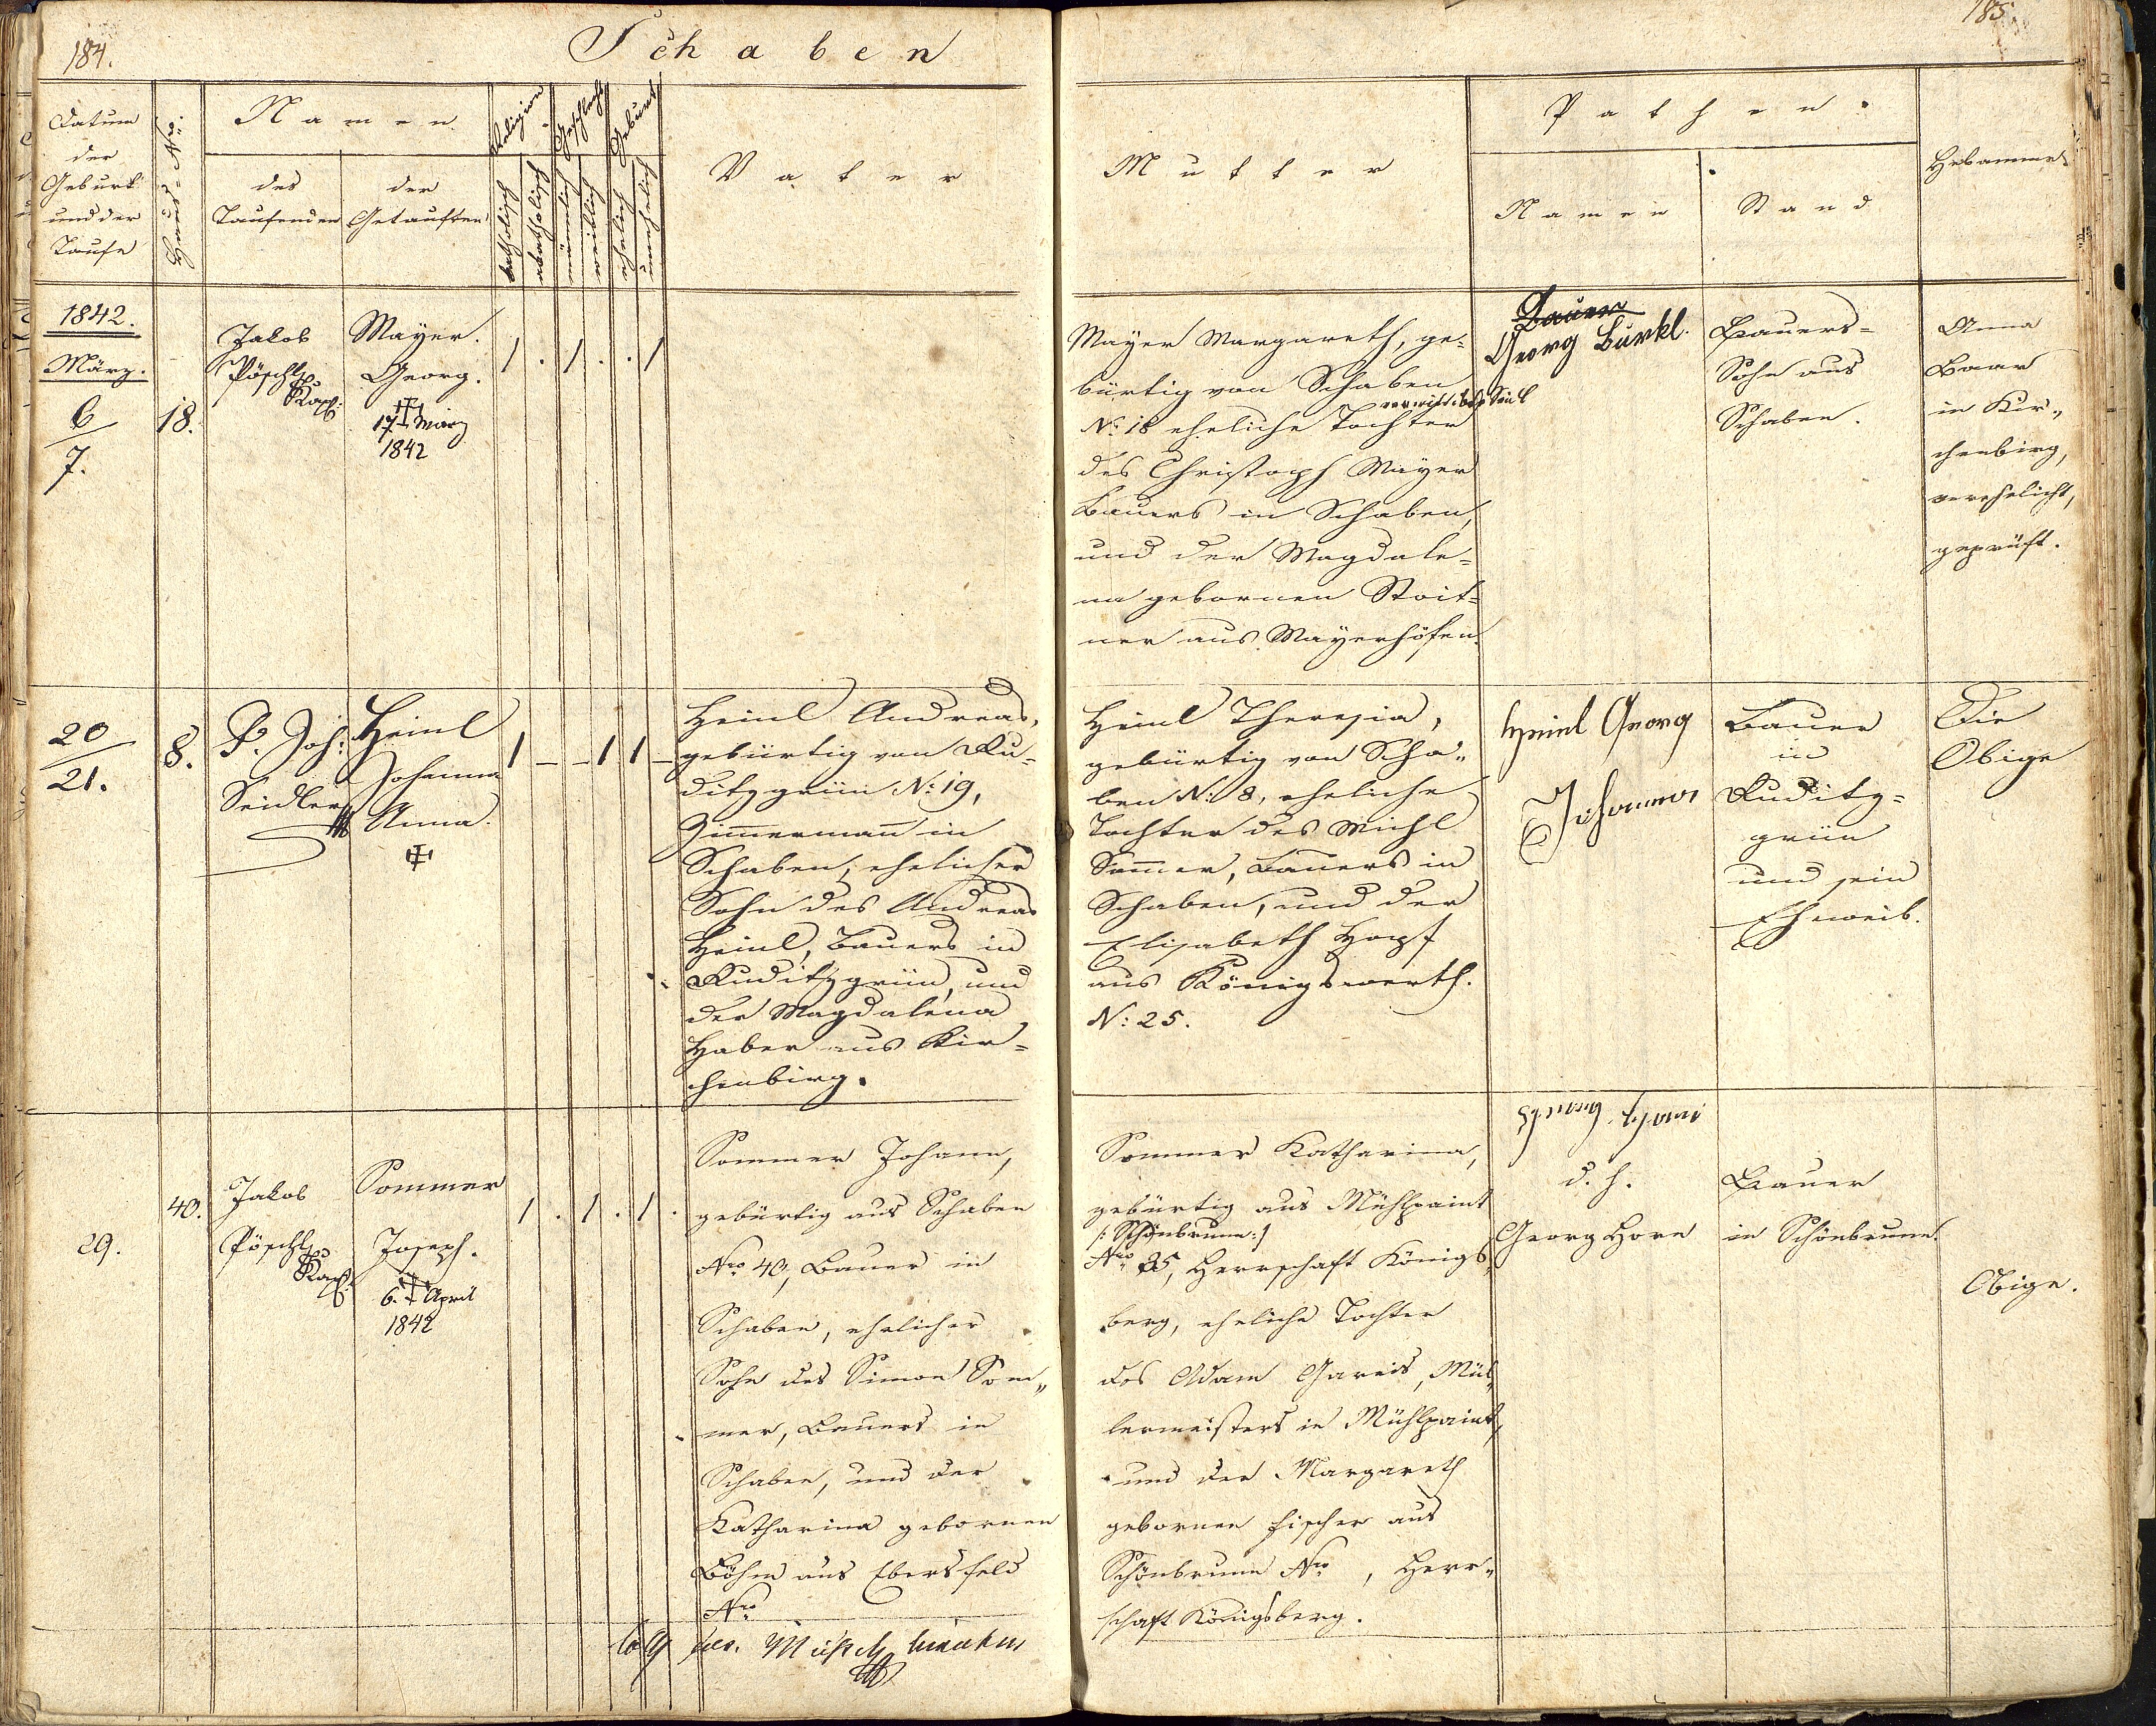 184.
Schaben
185
Datum
der
Geburt
und der
Taufe
Haus=Nro.
Namen
des
Taufenden
der
Getauften
Religion
katholisch
akatholisch
Geschlecht
männlich
weiblich
Geburt
ehelich
unehelich
Vater
Mutter
Pathen.
Namen
Stand
Hebamme
1842.
März.
6
7.
18.
Jakob
Pöschl
Kapl:
Mayer.
Georg.
† 17 März
1842
1 . 1 . . 1
Mayer Margareth, ge=
bürtig von Schaben
No: 18 eheliche Tochter
des Christoph Mayer
Bauers in Schaben,
und der Magdale=
na gebornen Stoit=
ner aus Mayerhöfen.
Georg Bürkl.
Bauers=
Sohn aus
Schaben.
Anna
Baar
in Kir„
chenbirg,
verehelicht,
geprüft.
20
21.
8.
P. Joh:
Seidler
Heinl
Johanna
Anna.
†
1 – – 1 1 –
Heinl Andreas,
gebürtig von Ru=
ditzgrün No: 19,
Zimmermann in
Schaben, ehelicher
Sohn des Andreas
Heinl, Bauers in
Ruditzgrün, und
der Magdalena
Haber aus Kir=
chenbirg.
Heinl Theresia,
gebürtig von Scha„
ben No: 8, eheliche
Tochter des Michl
Sommer, Bauers in
Schaben, und der
Elisabeth Hopf
aus Königswerth.
No: 25.
Heinl Georg
Johanna
Bauer
in
Ruditz=
grün
und sein
Eheweib.
Die
Obige
29.
40.
Jakob
Pöschl
Kapl:
Sommer
Joseph.
† 6. April
1842
1 . 1 . 1 .
Sommer Johann,
gebürtig aus Schaben
Nro 40, Bauer in
Schaben, ehelicher
Sohn des Simon Som„
mer, Bauers in
Schaben, und der
Katharina gebornen
Böhm aus Ebersfeld
Nro
Sommer Katharina,
gebürtig aus Mühlpaint
/: Schönbrunn :/
Nro 35, Herrschaft Königs„
berg, eheliche Tochter
des Adam Gareis, Mül„
lermeisters in Mühlpaint,
und der Margareth
gebornen Fischer aus
Schönbrunn Nro , Herr„
schaft Königsberg.
d. h.
Georg Horn
Bauer
in Schönbrunn.
Obige.